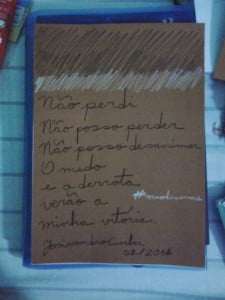 Não perdi
Não posso perder
Não posso desanimar
O medo
e a derrota
verão a
minha vitória.
02/2014